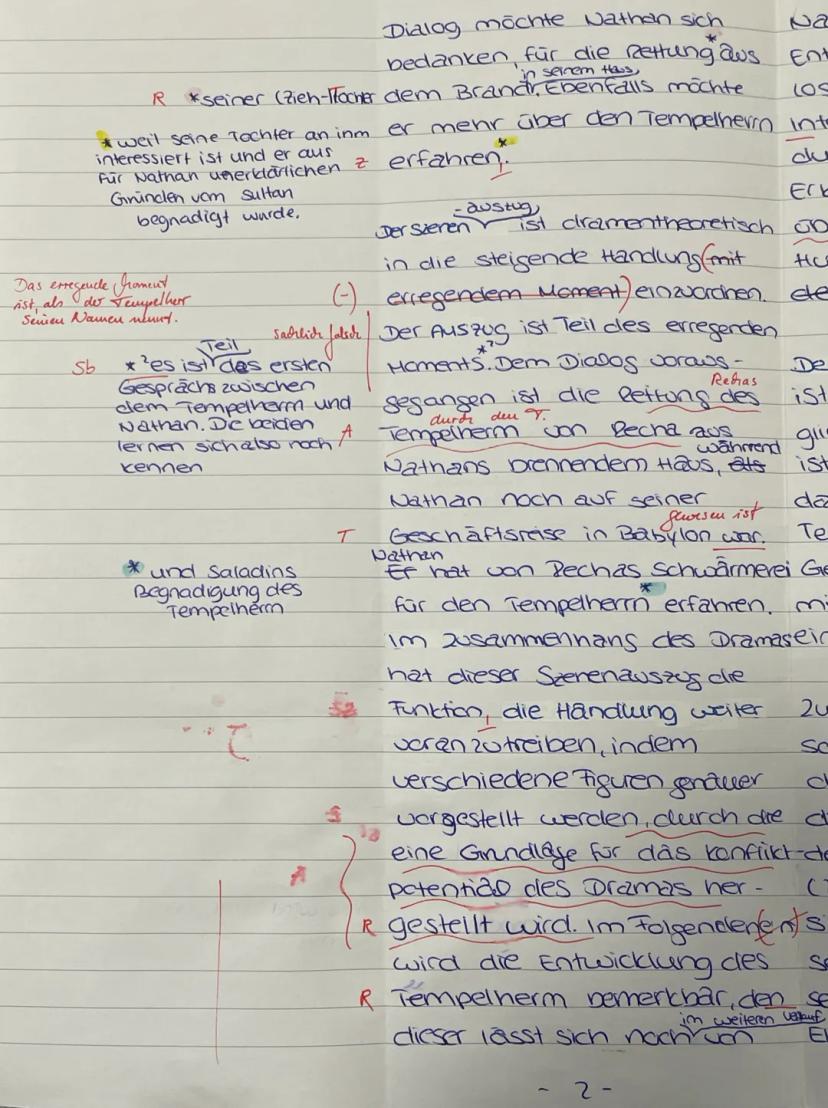 Dialog möchte Nathan sich
bedanken, für die Rettung * aus
in seinem Haus
R * seiner (Zieh-)Tochter dem Brand. Ebenfalls möchte
* weil seine Tochter an ihm er mehr über den Tempelherrn
interessiert ist und er aus z erfahren *.
für Nathan unerklärlichen
Gründen vom Sultan
begnadigt wurde.
-auszug
Der Szenen ist dramentheoretisch
in die steigende Handlung (mit
Das erregende Moment (-) erregendem Moment) einzuordnen.
ist, als der Tempelherr
seinen Namen nennt.
sachlich falsch Der Auszug ist Teil des erregenden
Teil
Sb *² es ist das ersten Moments. *² Dem Dialog voraus-
Gesprächs zwischen gegangen ist die Rettung des
Rechas
dem Tempelherrn und durch den T.
Nathan. Die beiden A Tempelherrn von Recha aus
während
lernen sich also noch Nathans brennendem Haus, als
kennen
Nathan noch auf seiner
gewesen ist
T Geschäftsreise in Babylon war.
Nathan
* und Saladins Er hat von Rechas Schwärmerei
Begnadigung des für den Tempelherrn * erfahren.
Tempelherrn
Im Zusammenhang des Dramas
hat dieser Szenenauszug die
Funktion, die Handlung weiter
voranzutreiben, indem
verschiedene Figuren genauer
vorgestellt werden, durch die
eine Grundlage für das Konflikt-
A potential des Dramas her-
R gestellt wird. Im Folgenden(en)
wird die Entwicklung des
R Tempelherrn bemerkbar, den
im weiteren Verlauf
dieser lässt sich noch von
- 2 -